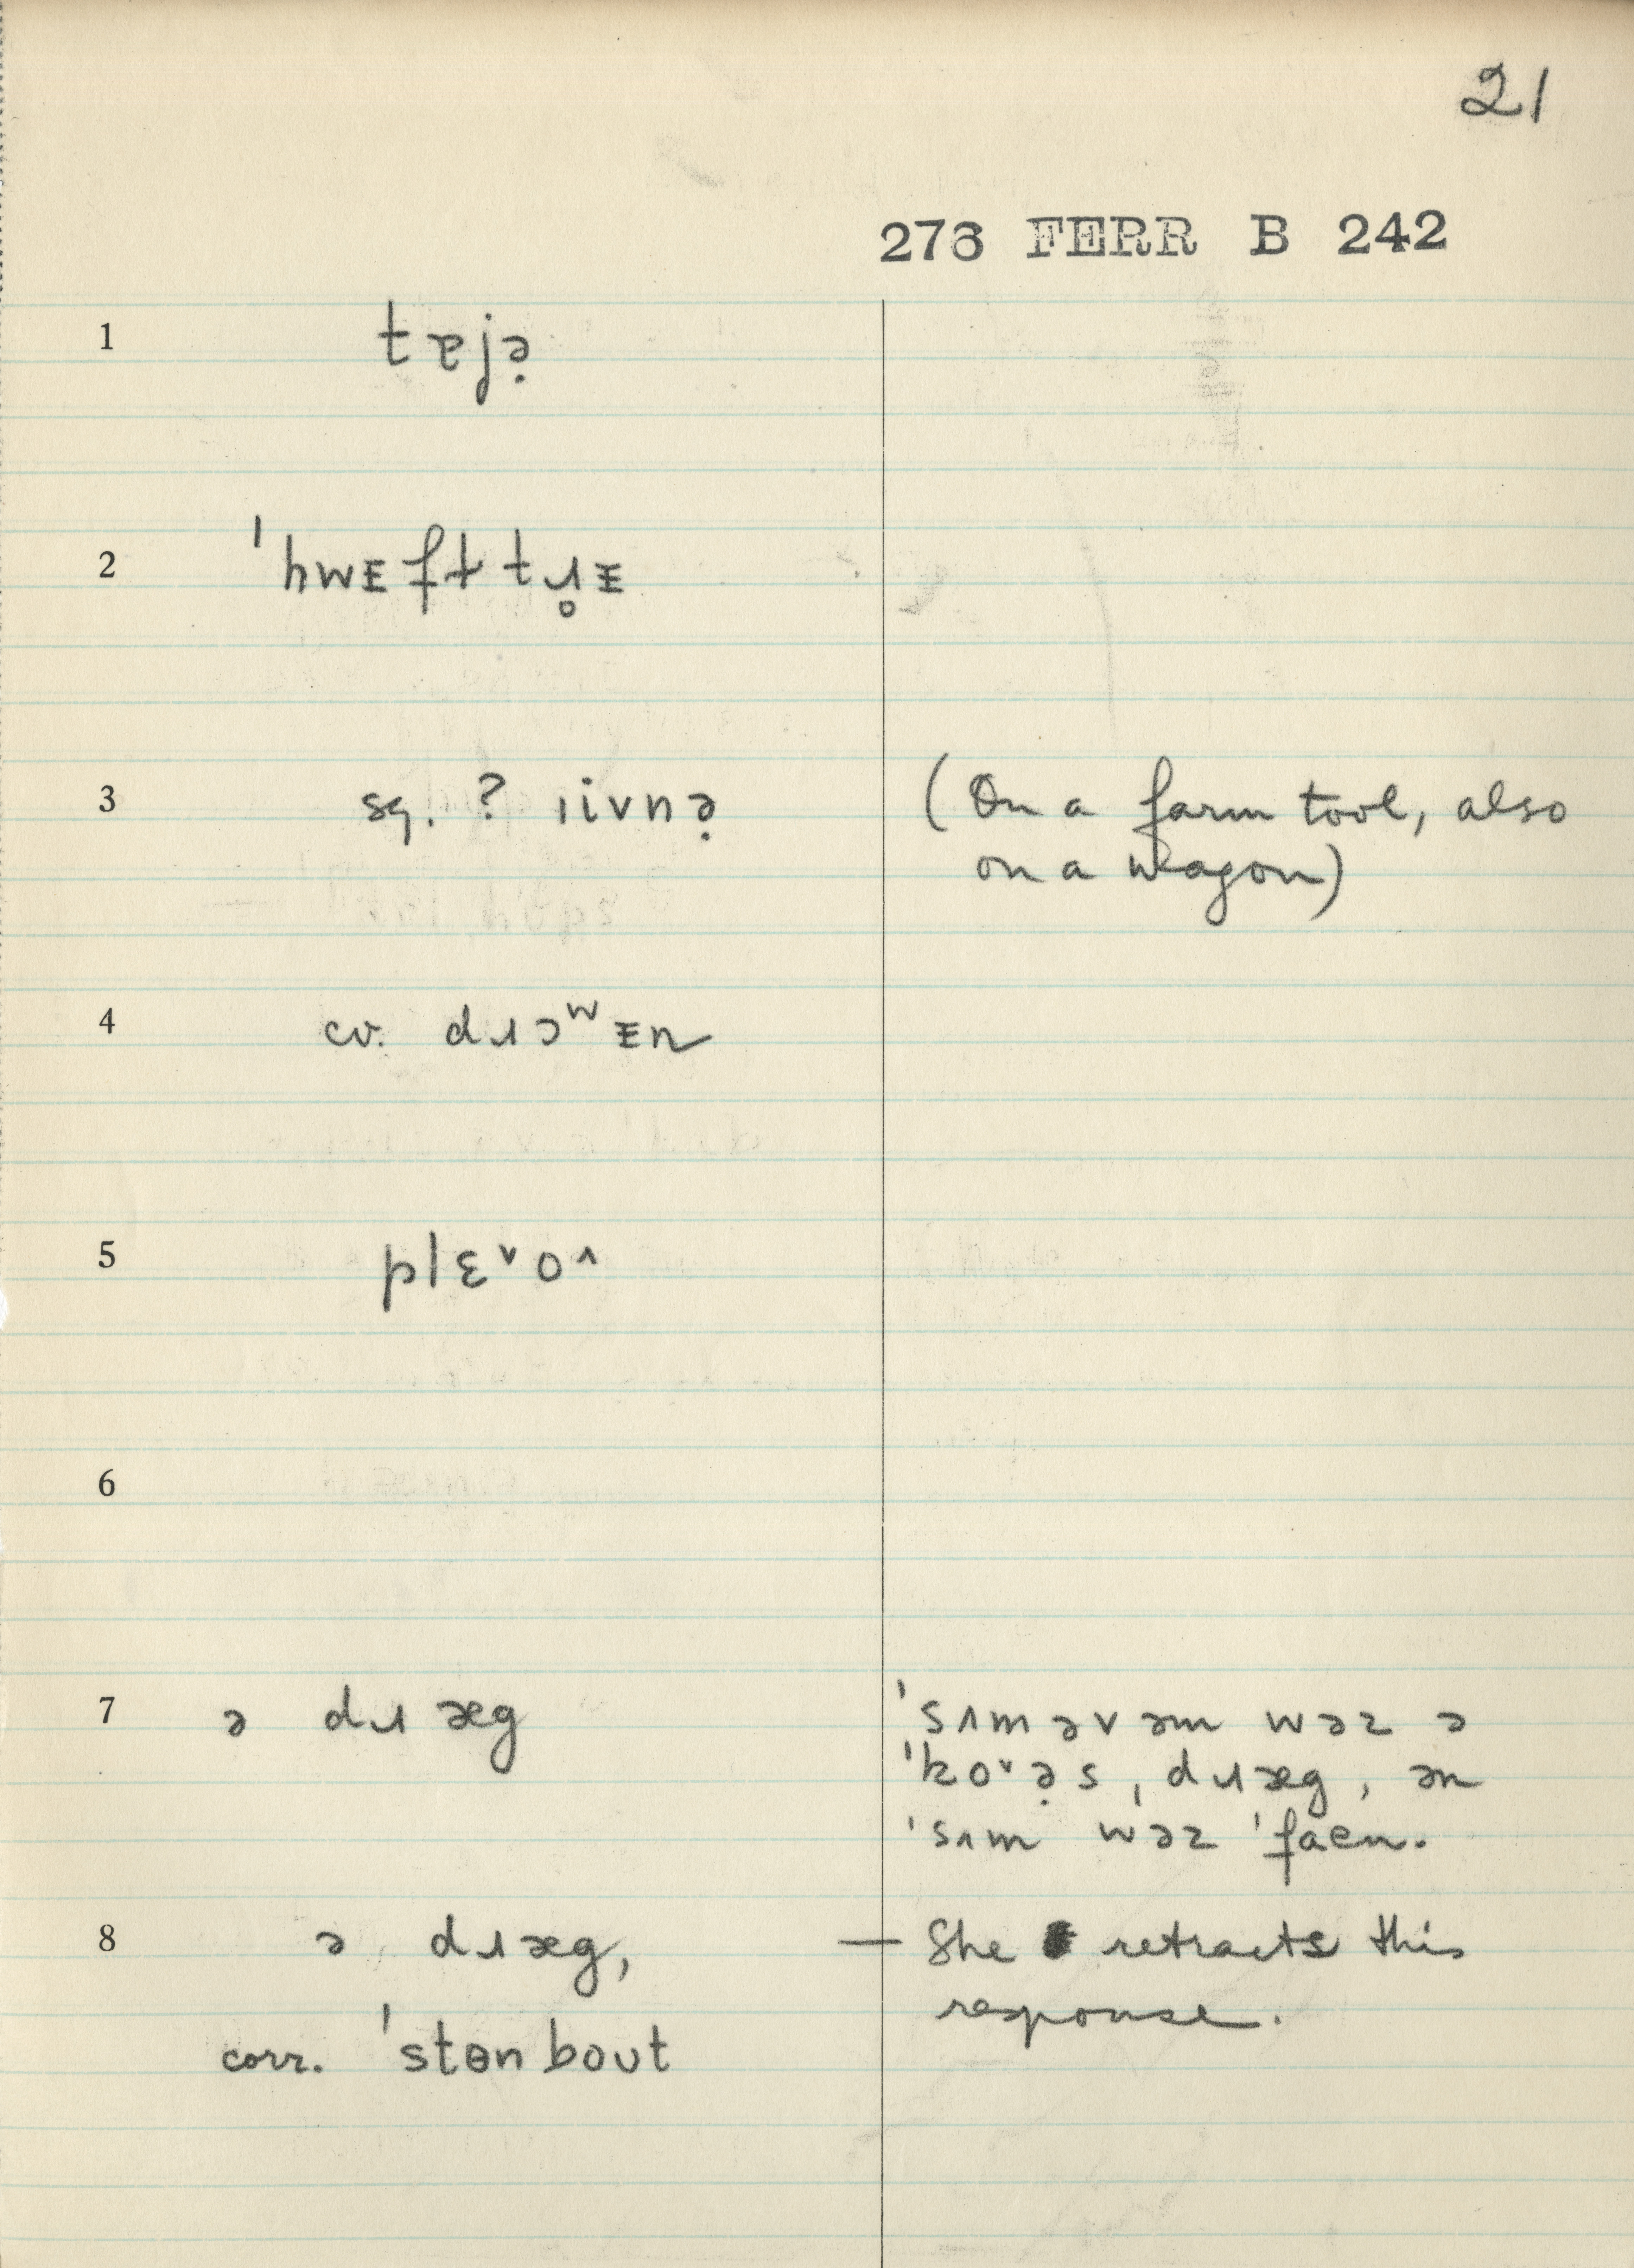 21
276 FERR B 242
1 tɐjə̣
2 ˈhwᴇft tɹ̥ᵻ
3 sq. ? ɪivnə̣ (On a farm tool, also
on a wagon)
4 cv. dɹɔʷᵻn
5 plɛ˅o˄
6
7 ə dɹæg ˈsʌməvəm wəz ə
ˈko˅ə̣s, dɹæg, ən
ˈsʌm wəz ˈfaen.
8 ə dɹæg, — She retracts this
response.
corr. ˈstɵnboʊt